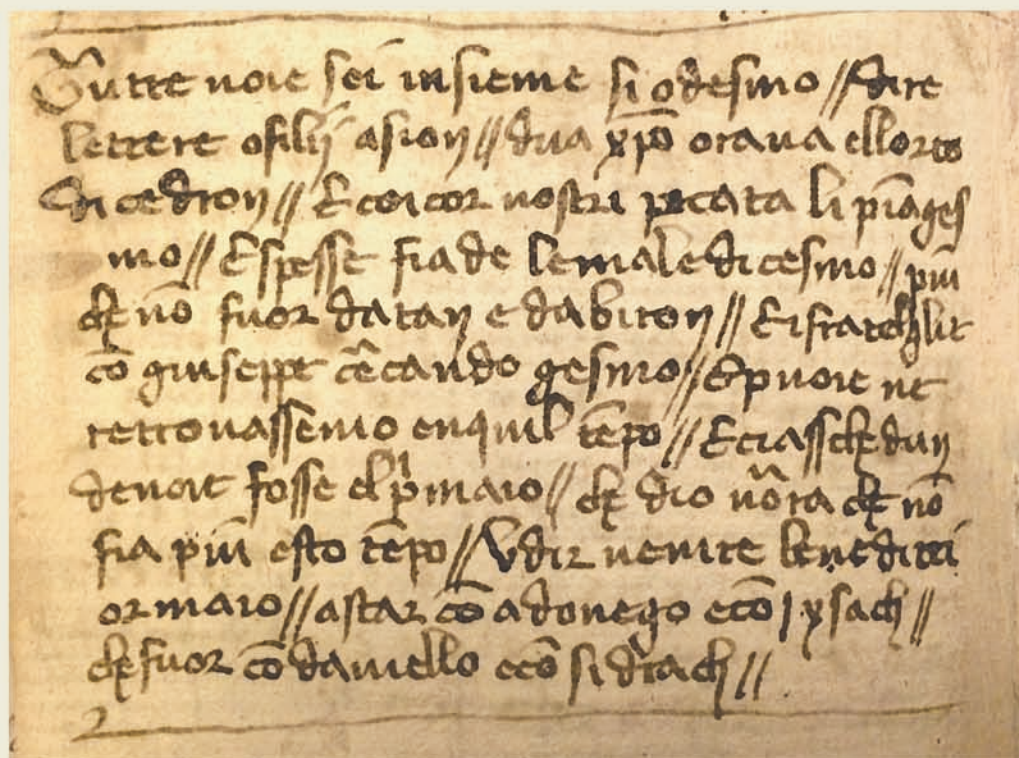 Tutte noie sei insieme si odesmo // dire
lettere o filij asion // dna xp̄o oraua ellorto
Di cedron // E coi cor nostri pecata li piā ges
mo // E spesse fiade le maledicesmo // piu
che nō fuor datan e dabiron // E i frateglie
cō giuseppe c̄ecando gesmo // E p noie ne
retrouassemo en quil t̄epo // E ciasschedun
de noie fosse el p̄maio // che dio uōra che nō
fia piu esto t̄epo // Vdir uenite beneditti
or maio // a star cō adonego e cō ysach //
che fuor cō daniello e cō sidrach //